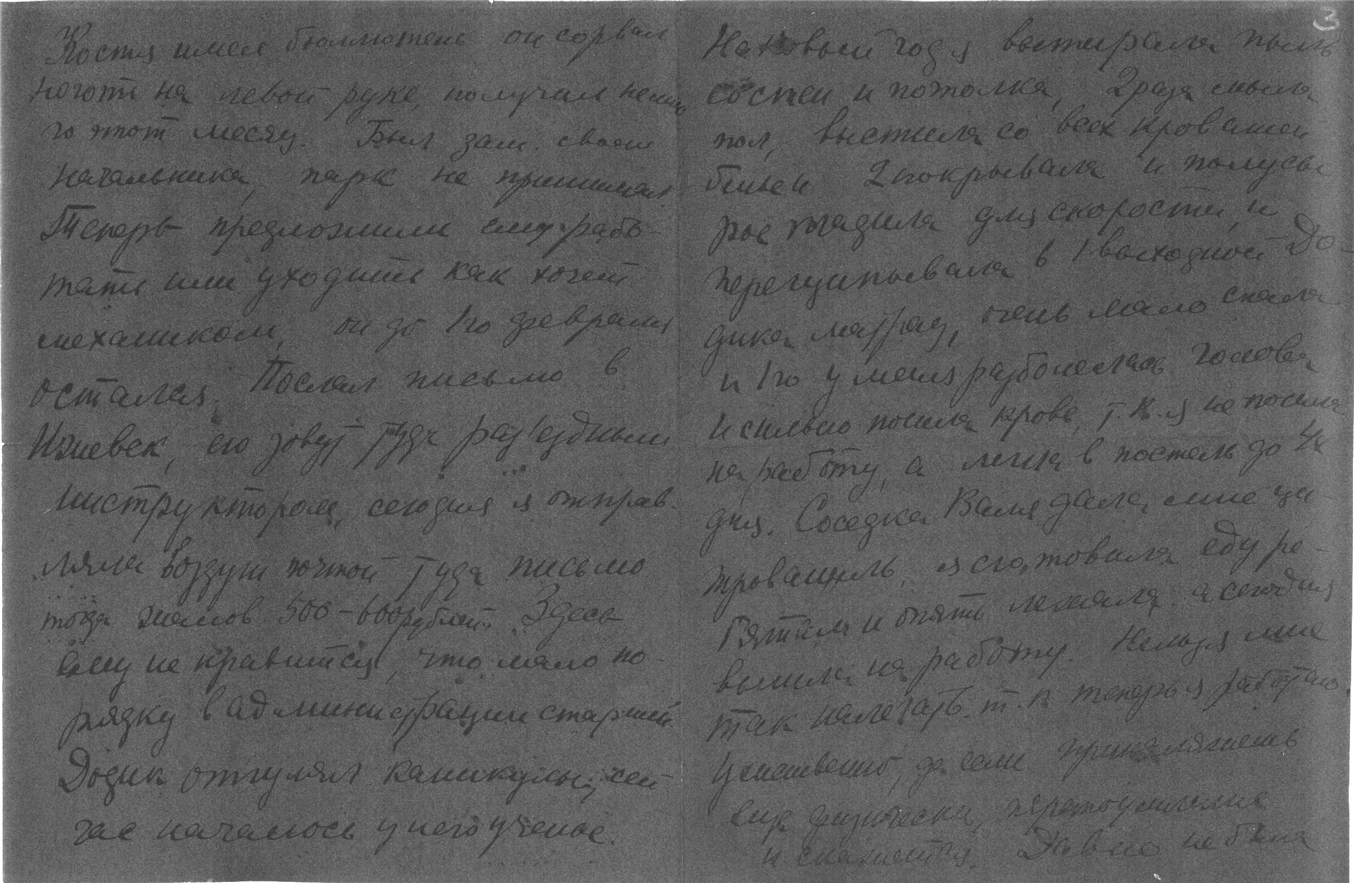 Костя имел бюллютень он сорвал
ноготь на левой руке, получил
го этот месяц. Был зам. своего
начальника, парк не принимал
Теперь предложили ему рабо-
тать или уходить как хочет
механиком, он до 1го февраля
остался. Послал письмо в
Ижевск, его зовут туда раз'ездным
инструктором, сегодня я отправ-
ляла воздуш почтой туда письмо
500-600 рублей. Здесь
ему не нравится, что мало по-
рядку в администрации старшей
Додик отгулял каникулы, сей
час началось у него ученье.
3
На новый год я вытирала пыль
со стен и потолка, 2 раза мыла
пол, выстила со всех кроватей
белье и 2 покрывала и полусы
рое гладила для скорости, и
перещипывала в 1 выходной До-
дика матрац, очень мало спала
и 1го у меня разболелась голова
и сильно пошла кровь, т.к. я не пошла
на работу, а легла в постель до 4х
дня. Соседка Валя дала мне ци-
трованиль, я сготовила еду ре-
бятам и опять лежала а сегодня
вышла на работу. Нельзя мне
так налегать т.к теперь я работаю
умственно, да если
еще физически, переутомление
и скажется. Давно не была